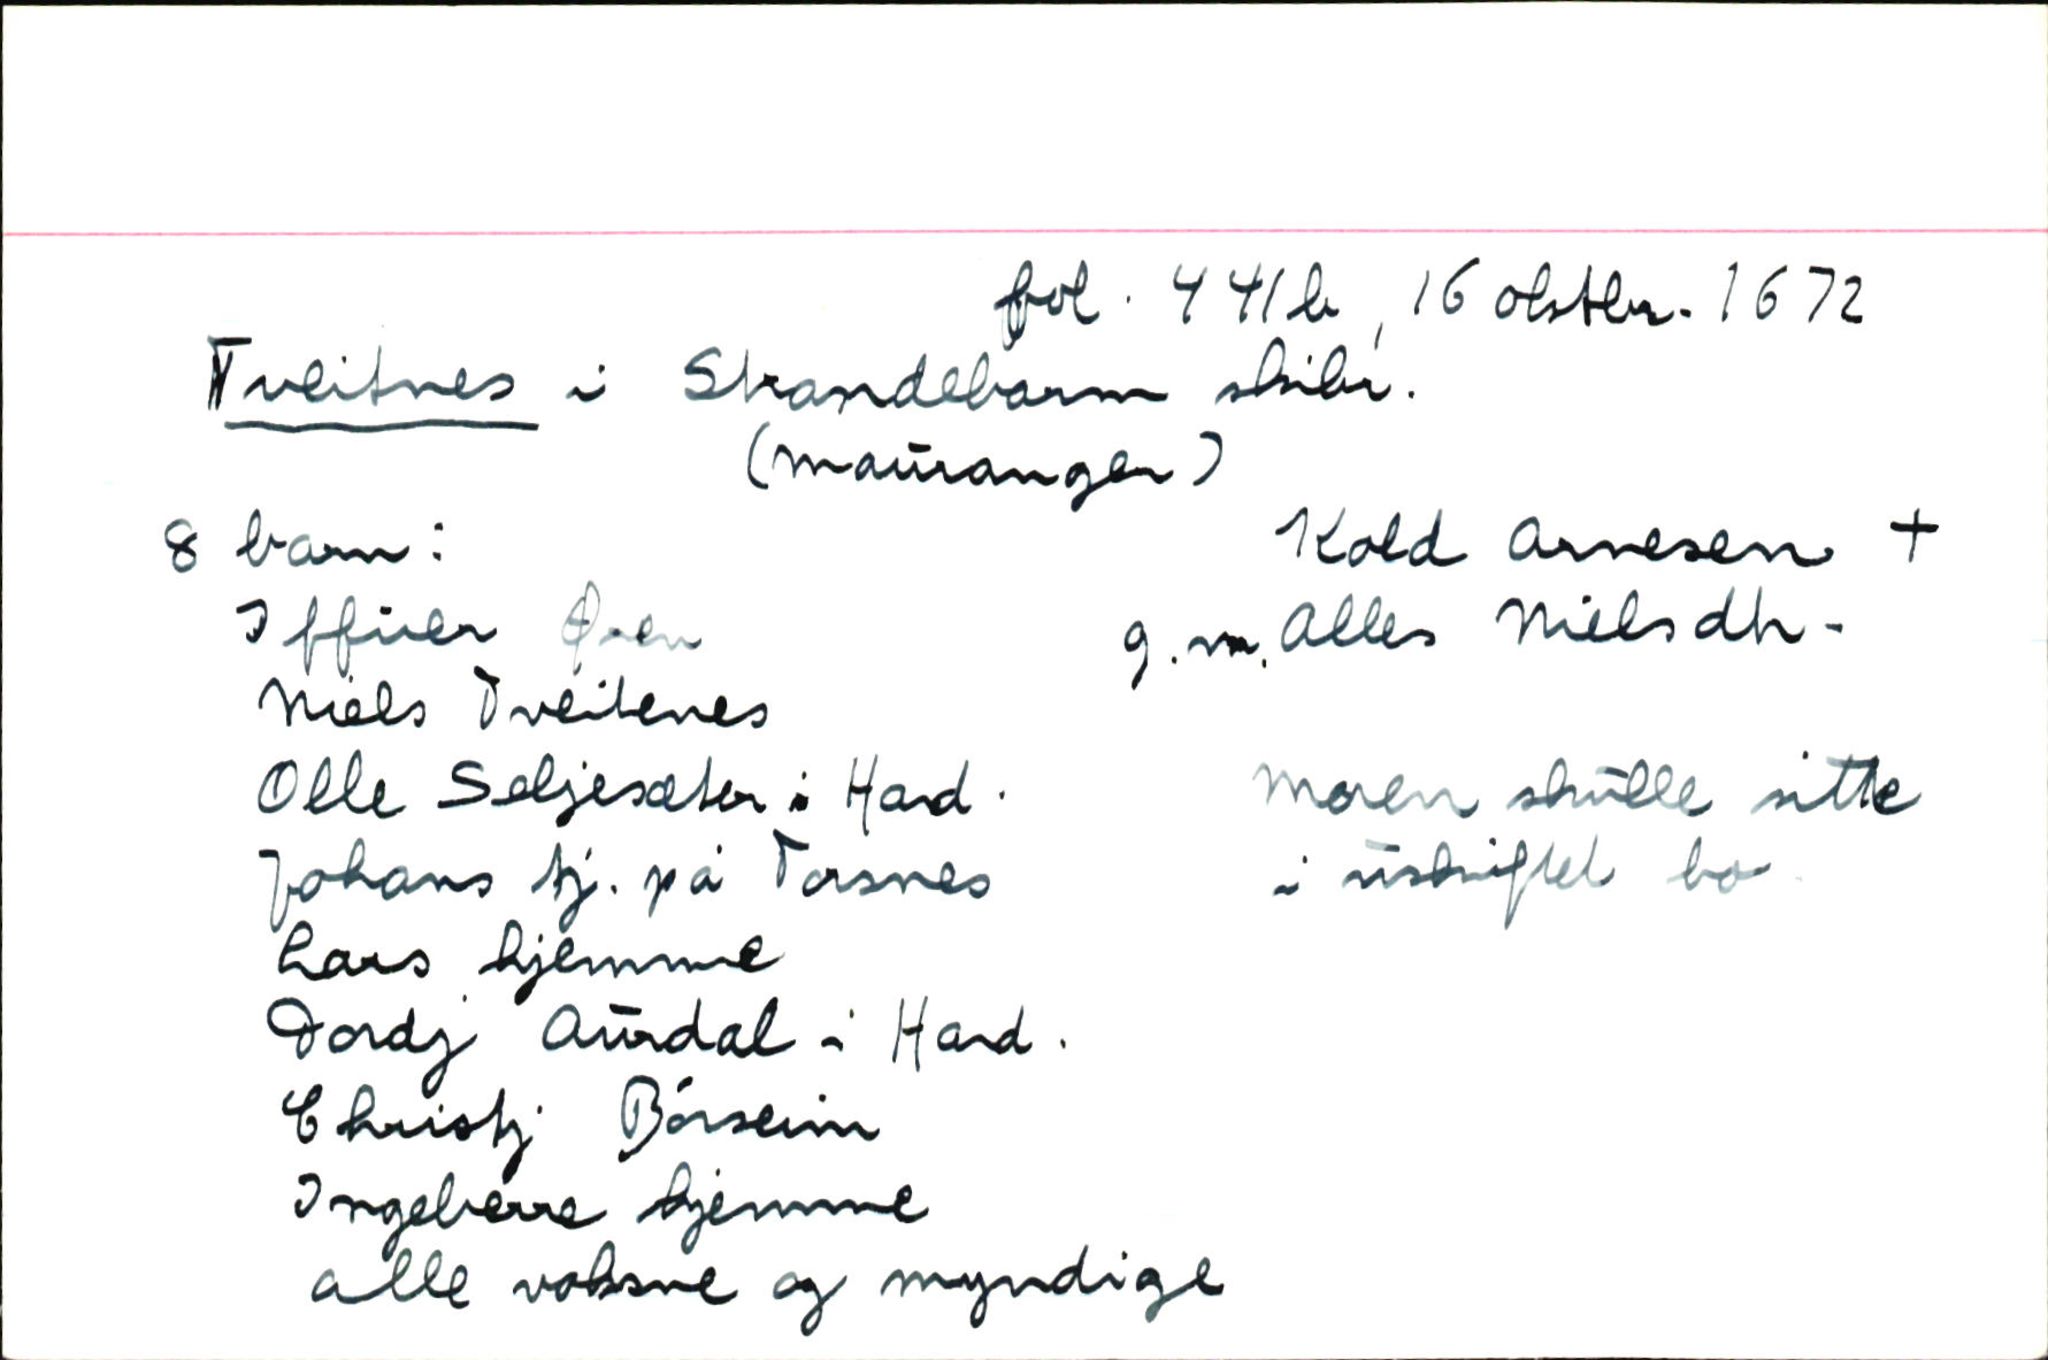 fol. 441b, 16 oktbr. 1672
Tveitnes i Strandebarm skibr.
(Mauranger)
8 barn:
Kold Arnesen +
Iffuer Øren
g.m. Alles Nielsdtr.
Niels Tveitenes
Olle Seljesæter i Hard.
Moren skulle sitte
Johans tj. på Torsnes
i uskiftet bo
Lars hjemme
Dordj Aurdal i Hard.
Christj Börseim
Ingeberre hjemme
alle voksne og myndige